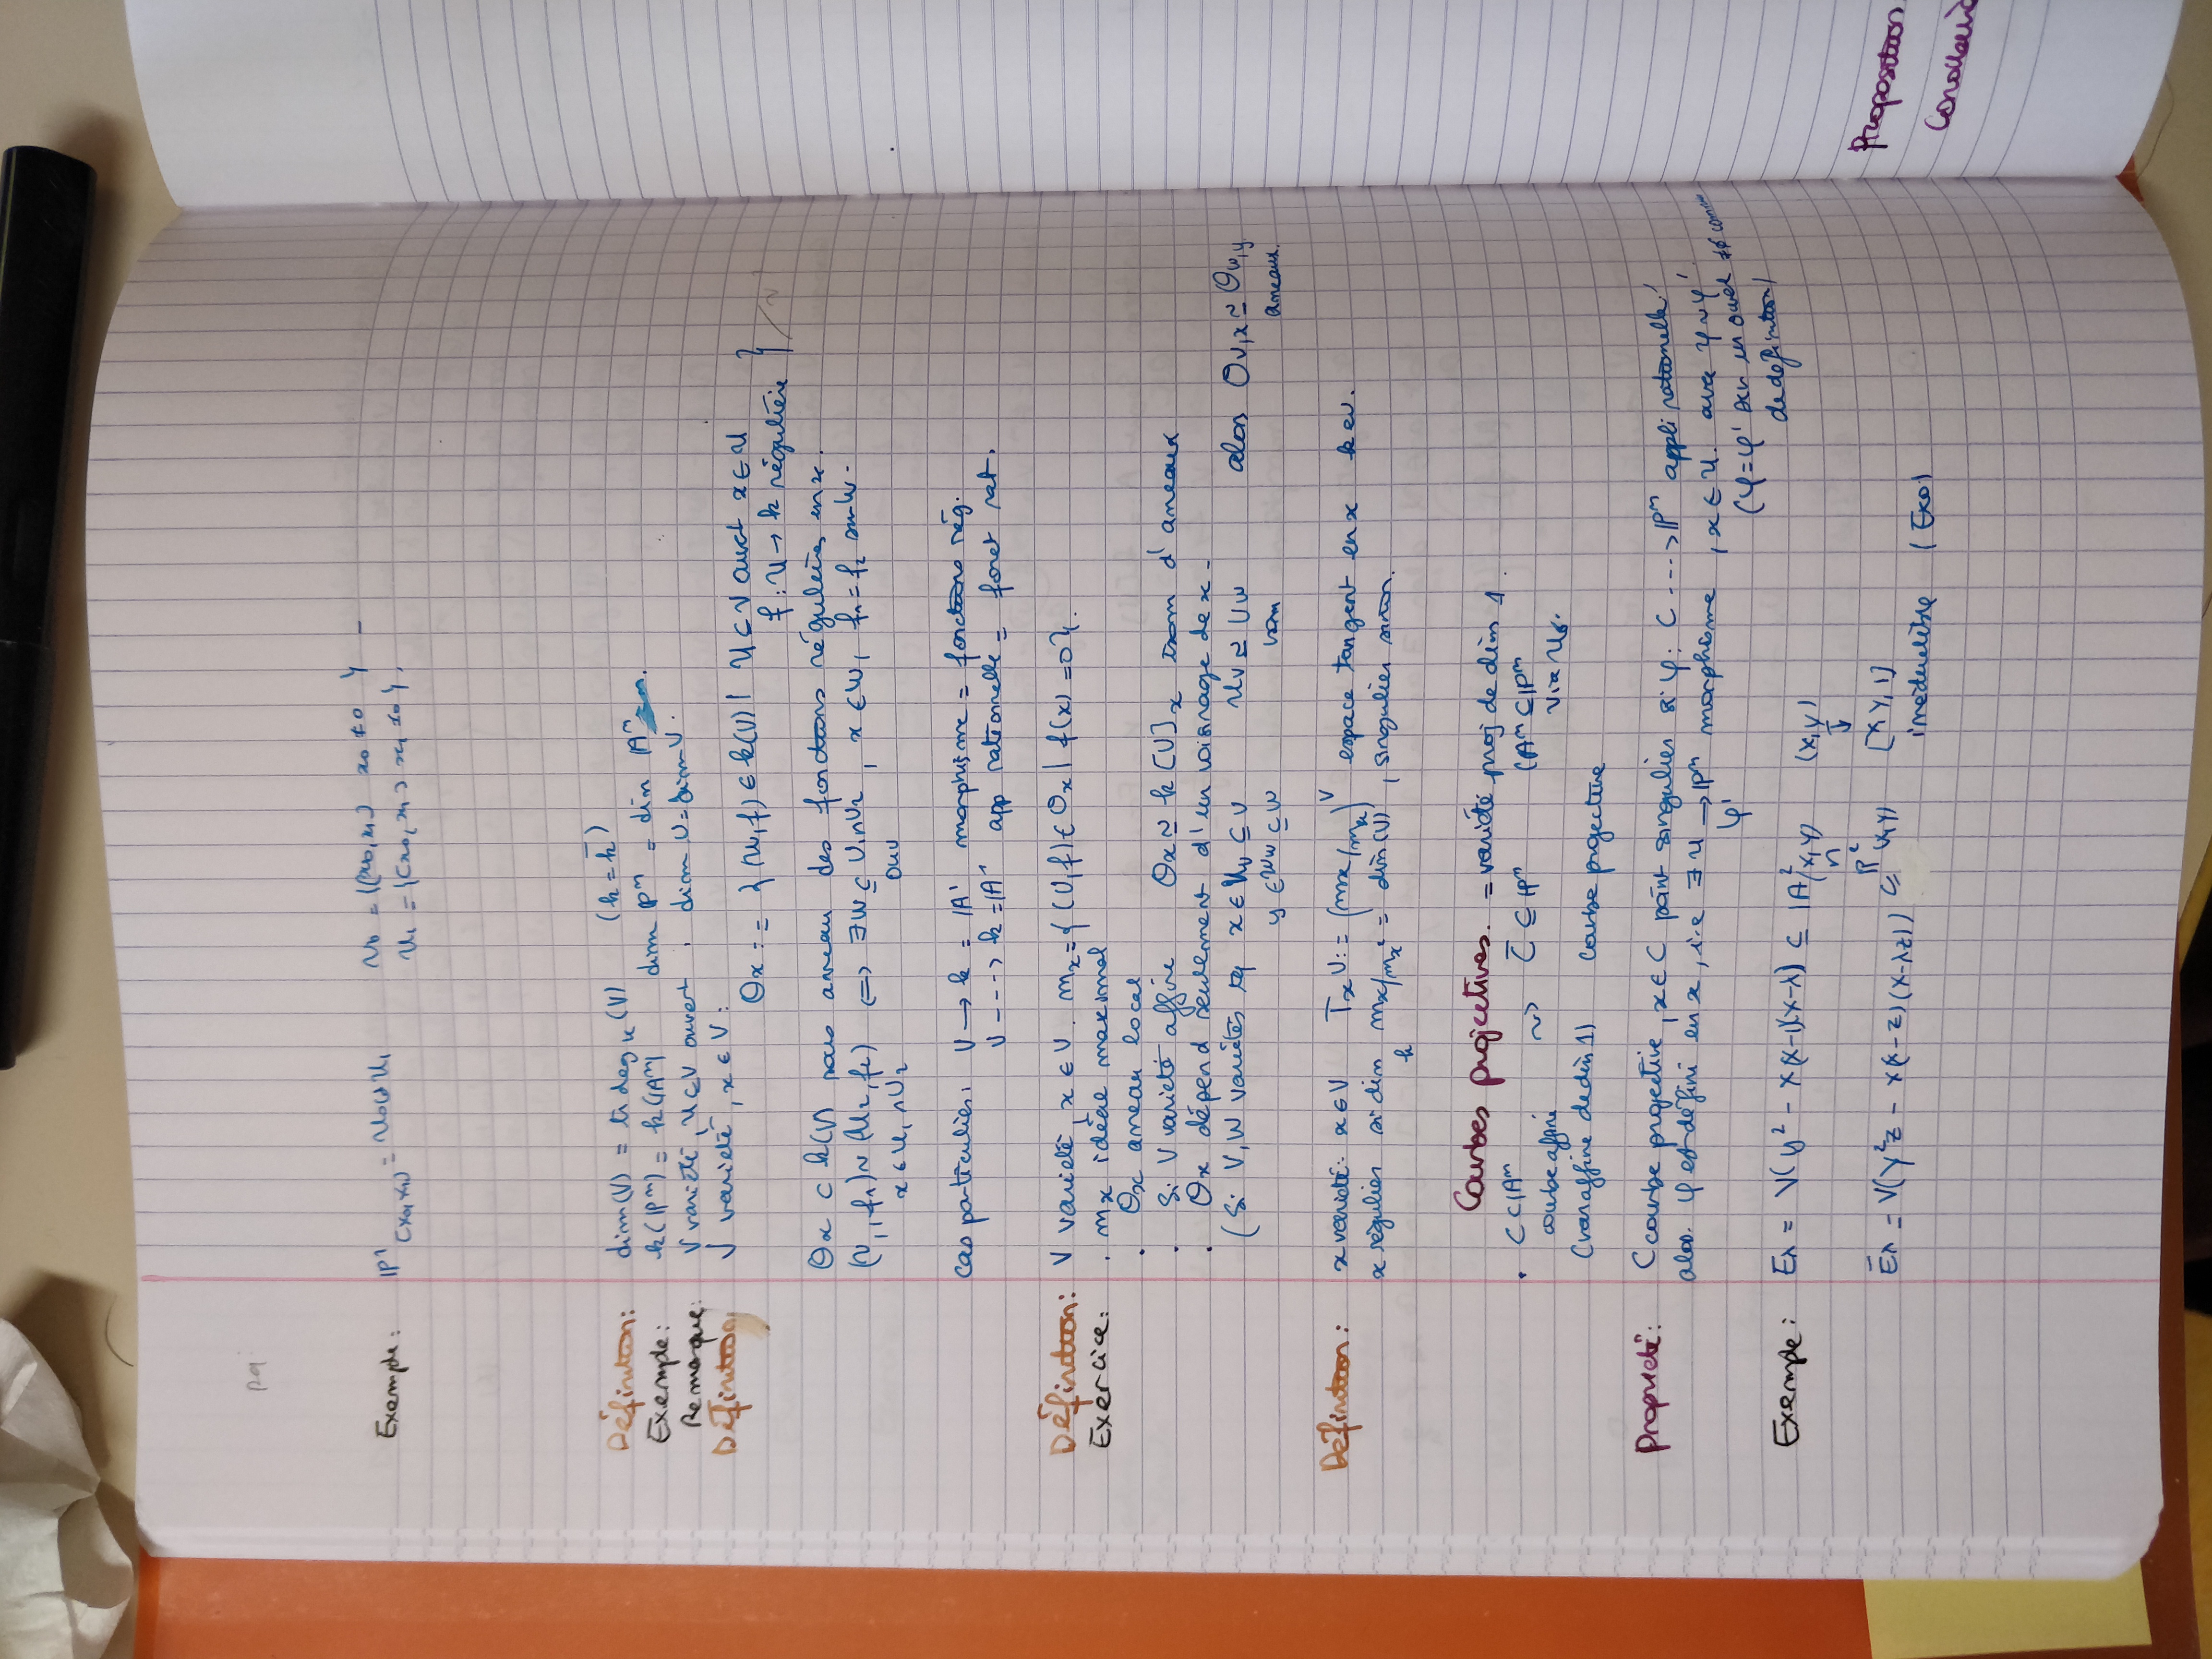 p9
Exemple: |P¹(x₀,x₁) = U₀ ∪ U₁ U₀ = {(x₀,x₁) x₀ ≠ 0 } -
U₁ = {(x₀,x₁) x₁ ≠ 0 }.
Définition: dim(V) = tr deg_k (V) (k = k̄)
Exemple: k(|Pⁿ) = k(|Aⁿ) dim |Pⁿ = dim |Aⁿ = n.
Remarque: V variété, U ⊆ V ouvert, dim U = dim V.
Définition V variété, x ∈ V:
Θx := { (U,f) ∈ k(V) | U ⊂ V ouvert x ∈ U
f : U → k régulière } / ~
Θx ⊂ k(V) sous anneau des fonctions régulières en x.
(U₁, f₁) ~ (U₂, f₂) ⟺ ∃ W ⊆ U₁ ∩ U₂, x ∈ W, f₁ = f₂ sur W.
x ∈ U₁ ∩ U₂ ouv
cas particulier: V → k = |A¹ morphisme = fonctions rég.
V ----> k = |A¹ app rationnelle = fonct rat.
Définition: V variété, x ∈ V. mx = { (U,f) ∈ Θx | f(x) = 0 }.
Exercice: . mx idéal maximal
. Θx anneau local
. Si V variété affine Θx ≃ k[V]x isom d'anneaux
. Θx dépend seulement d'un voisinage de x -
( Si V, W variétés tq x ∈ Uv ⊆ V Uv ≃ Uw alors Θv,x ≃ Θw,y
y ∈ Uw ⊆ W isom anneaux.
Définition: x variété: x ∈ V TxV := (mx/mx)^V espace tangent en x k ev.
x régulier si dim mx/mx² = dim(V), singulier sinon.
k
Courbes projectives. = variété proj de dim 1.
. C ⊂ |Aⁿ ~> C̄ ⊆ |Pⁿ (Aⁿ ⊆ |Pⁿ
courbe affine via U₀.
(var affine de dim 1) courbe projective
Propriété: C courbe projective, x ∈ C point singulier si φ: C ----> |Pⁿ appli rationnelle
alors φ est défini en x, i.e ∃ U → |Pⁿ morphisme, x ∈ U. avec φ ~ φ'
φ' (φ = φ' sur un ouvert ≠ ∅ commun
de définition)
Exemple: Eλ = V(y² - x(x-1)(x-λ)) ⊆ |A²(x,y) (x,y)
∩ ↧
Ēλ = V(y²z - x(x-z)(x-λz)) ⊆ P²(x,y) [x,y,1]
irréductible (Exo)
Proposition